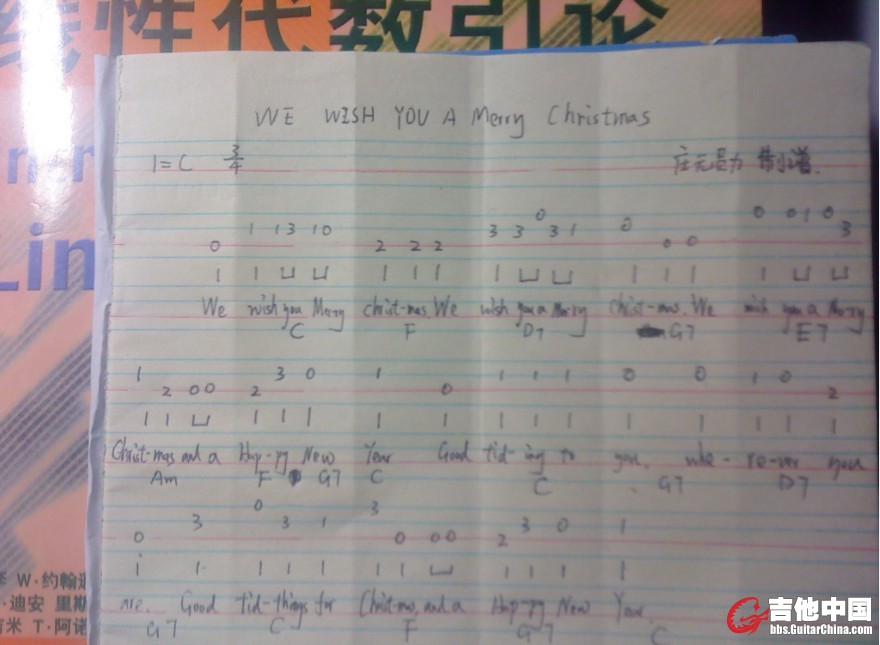 线性代数引论
Lin
WE WISH YOU A Merry Christmas
1=C 3/4
0 1 1 3 1 0 2 2 2 3 3 0 3 1 0 0 0 0 0 1 0 3
We wish you Merry christ-mas. We wish you a Merry christ-mas. We wish you a Merry
C F D7 G7 E7
1 2 0 0 2 3 0 1 0 1 1 1 0 0 1 0 2
Christ-mas and a Hap-py New Year Good tid-ing to you. whe-re-ver you
Am F G7 C C G7 D7
0 3 0 3 1 3 0 0 0 2 3 0 1
are. Good tid-things for Christ-mas, and a Hap-py New Year.
G7 C F G7 C
W·约翰逊
·迪安 里斯
米 T·阿诺
吉他中国
bbs.GuitarChina.com